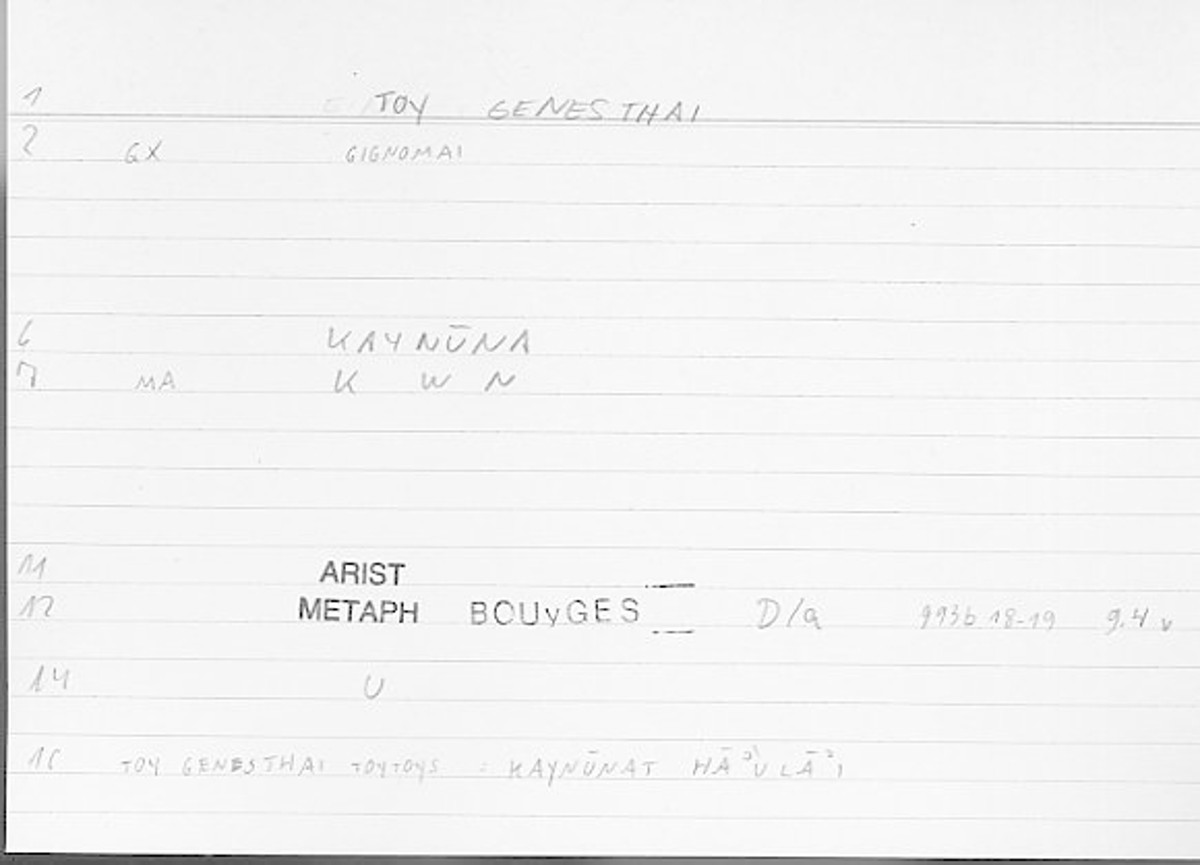 1 TOY GENESTHAI
2 GX GIGNOMAI
6 KAYNŪNA
7 MA K W N
11 ARIST
12 METAPH BOUyGES D/a 993b 18-19 9.4 v
14 U
16 TOY GENESTHAI TOYTOYS : KAYNŪNAT HĀʾULĀʾI